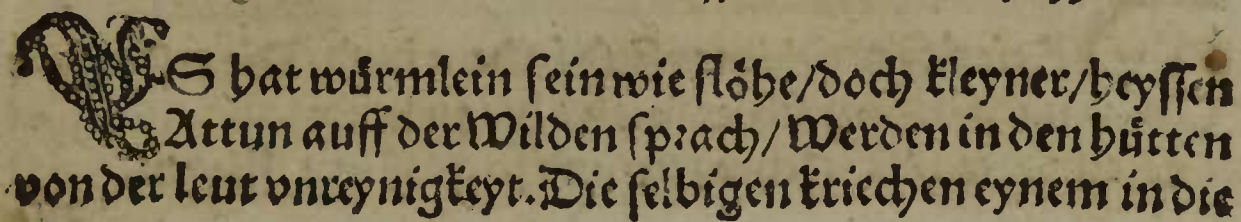 ES hat würmlein sein wie flöhe/doch kleyner/heyssen
Attun auff der Wilden sprach/ Werden in den hütten
von der leut vnreynigkeyt. Die selbigen kriechen eynem in die